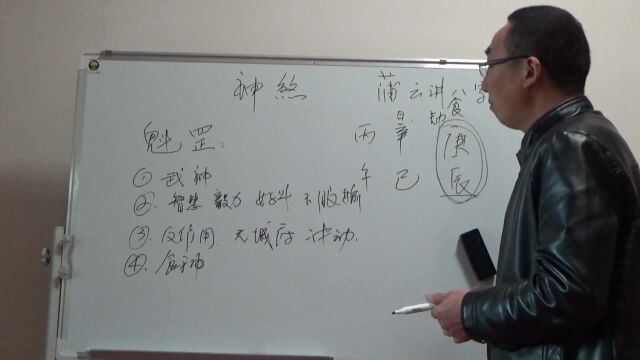 神煞 蒲云讲八字
食
魁罡: 丙 庚
① 武神 午 己 辰
②. 智慧 毅力 好斗 不服输
③. 反作用. 无城府 冲动.
④. 食神